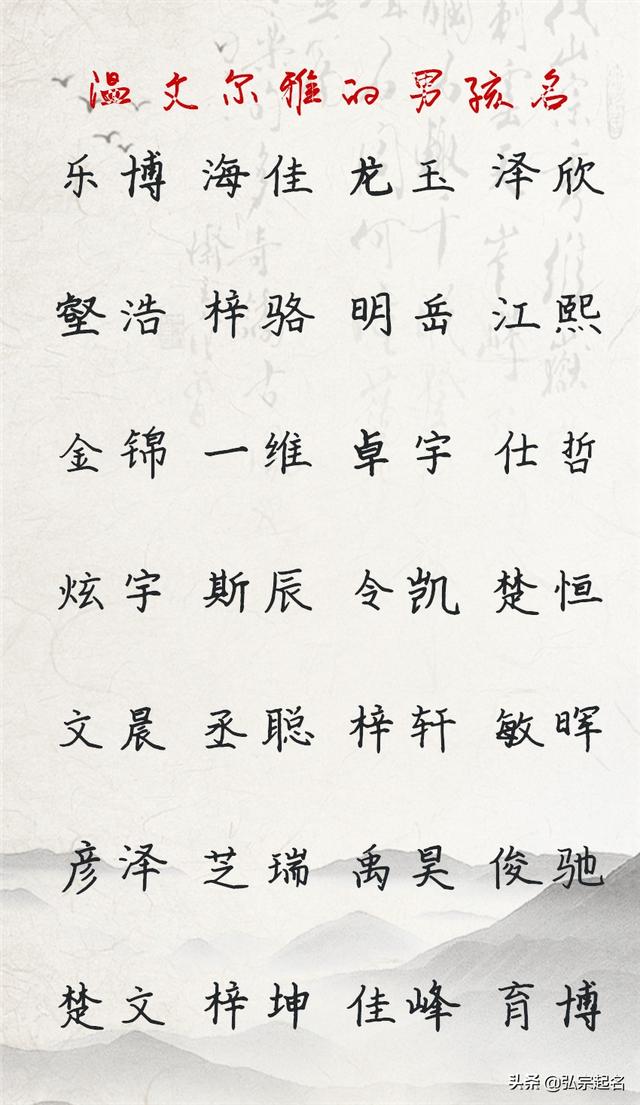 温文尔雅的男孩名
乐博 海佳 龙玉 泽欣
壑浩 梓骆 明岳 江熙
金锦 一维 卓宇 仕哲
炫宇 斯辰 令凯 楚恒
文晨 丞聪 梓轩 敏晖
彦泽 芝瑞 禹昊 俊驰
楚文 梓坤 佳峰 育博
头条 @弘宗起名